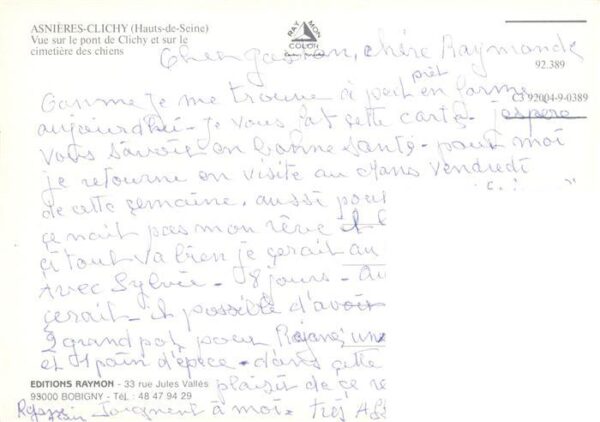 ASNIÈRES-CLICHY (Hauts-de-Seine)
Vue sur le pont de Clichy et sur le
cimetière des chiens
RAYMON
COLOR
92.389
C3 92004-9-0389
chère Raymonde
Comme je me trouve à peut prêt en forme
aujourdhui - je vous cette carte - jespere
vous savoir en bonne santé - pour moi
je retourne en visite au Mans Vendredi
de cette semaine. aussi pour
ce nait pas mon rêve
çi tout va bien je çerait au
Avec Sylvie - 8 jours - au
çerait-il possible d'avoir
2 grand pot pour Rojane, une
et 1 pain d'épece - d'avés cette
plaisir de ce re
Joignent à moi - très
EDITIONS RAYMON - 33 rue Jules Vallès
93000 BOBIGNY • Tél : 48 47 94 29